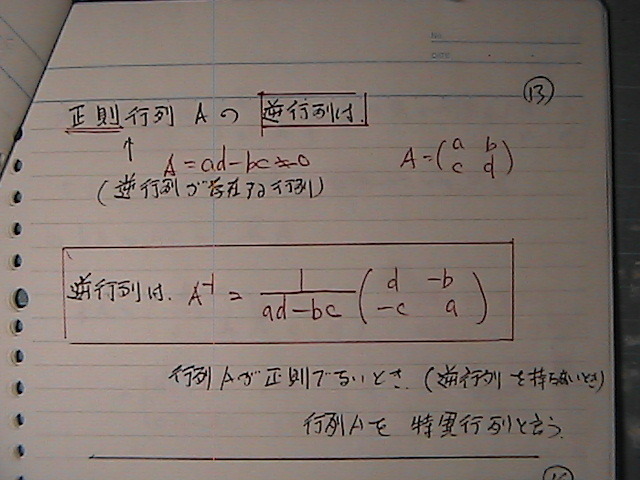 No.
DATE
⑬
正則行列 A の 逆行列は.
↑ A = ad-bc ≠ 0 A = (a b
c d)
(逆行列が存在する行列)
逆行列は. A⁻¹ = 1/(ad-bc) (d -b
-c a)
行列Aが正則でないとき. (逆行列を持たないとき)
行列Aを 特異行列と言う.